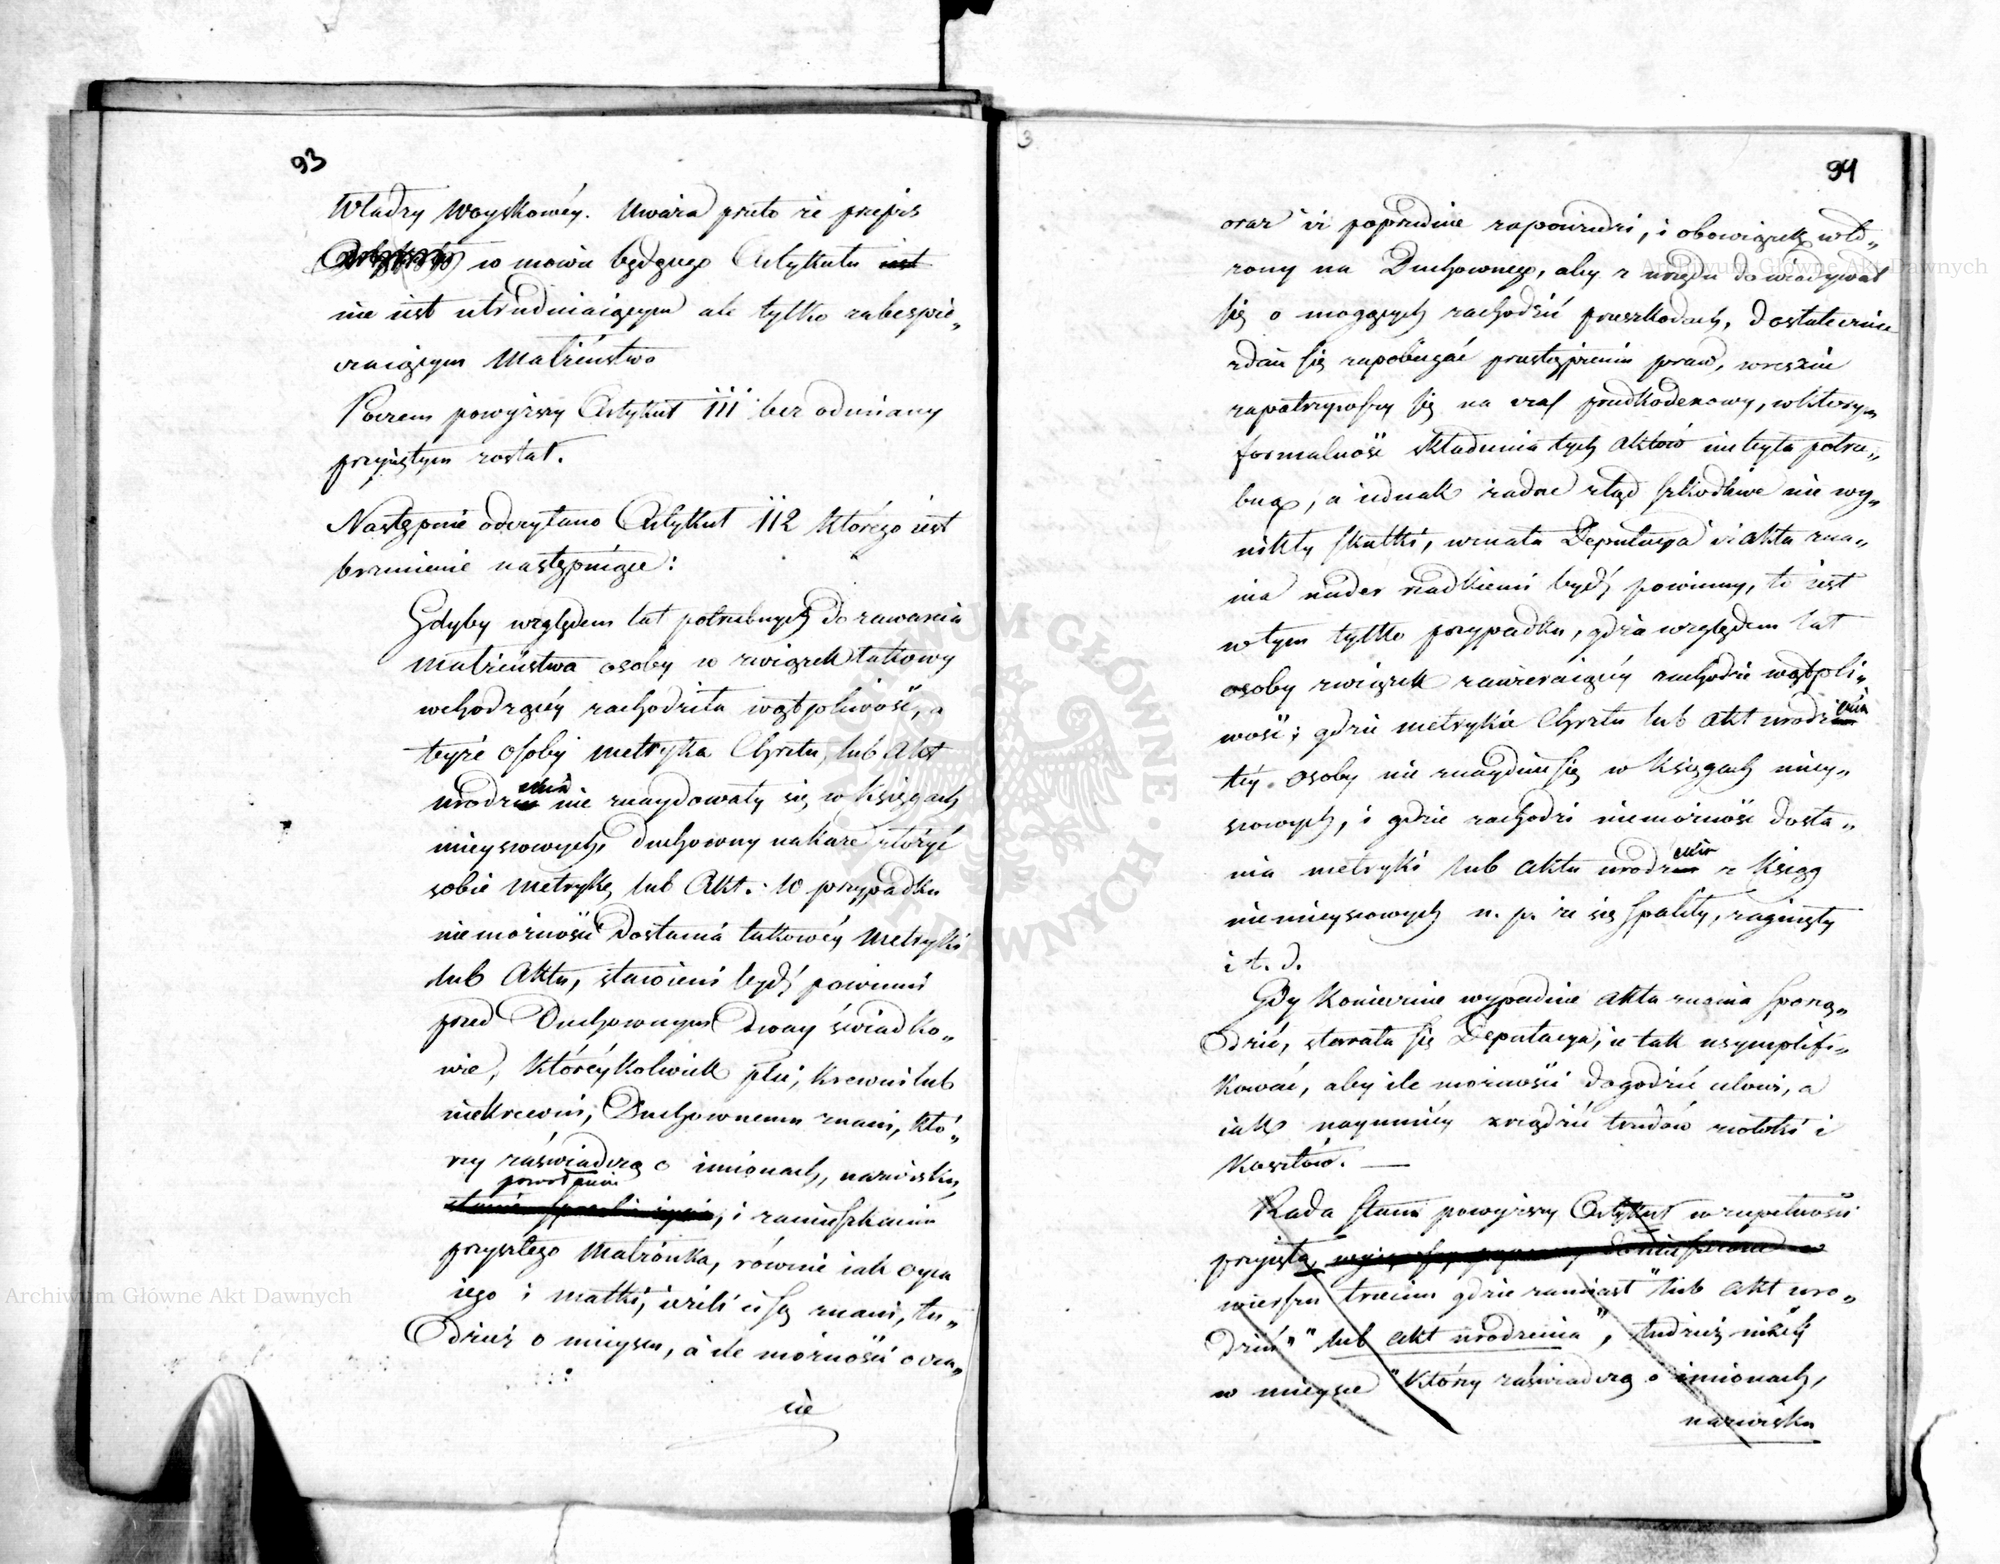 93
Władzy Woyskowéy. Uważa przeto że przepis
w mowie będącego Artykułu iest
nie iest utrudniaiącym ale tylko zabespie„
czaiącym Małżeństwo
Poczem powyższy Artykuł 111 bez odmiany
przyiętym został.
Następnie odczytano Artykuł 112 którego iest
brzmienie następuiące:
Gdyby względem lat potrzebnych do zawarcia
Małżeństwa osoby w związek takowy
wchodzącéy zachodziła wątpliwość, a
teyże osoby metryka Chrztu, lub Akt
urodzenia nie znaydowały się w Księgach
mieyscowych, Duchowny nakaże złożyć
sobie Metrykę, lub Akt.: w przypadku
niemożności dostania takowéy Metryki
lub Aktu, stawieni bydź powinni
przed Duchownym dway świadko„
wie, któréykolwiek płci, krewni lub
niekrewni, Duchownemu znani, któ„
rzy zaświadczą o imionach, nazwisku,
powołaniu
stanie sposobie życia, i zamieszkaniu
przyszłego Małżonka, równie iak oyca
iego i matki, ieżeli ci są znani, tu„
dzież o mieyscu, a ile możności o cza„
sie
3
94
oraz iż poprzednie zapowiedzi, i obowiązek wło„
żony na Duchownego, aby z urzędu dowiadywał
się o mogących zachodzić przeszkodach, dostatecznie
zdaią się zapobiegać przestąpieniu praw, wreszcie
zapatrzywszy się na czas przedkodexowy, w którym
formalność składania tych Aktów nie była potrze„
bną, a iednak żadne ztąd szkodliwe nie wy„
nikły skutki, uznała Deputacya iż akta zna„
nia nader rzadkiemi bydź powinny, to iest
w tym tylko przypadku, gdzie względem lat
osoby związek zawieraiącéy zachodzi wątpli„
wość; gdzie metryka Chrztu lub akt urodzenia
téy osoby nie znayduie się w Księgach miey„
scowych, i gdzie zachodzi niemożność dosta„
nia metryki lub aktu urodzenia z Ksiąg
niemieyscowych n. p. że się spaliły, zaginęły
i t. d.
Gdy koniecznie wypadnie akta znania sporzą„
dzić, starała się Deputacya, ie tak usymplifi„
kować, aby ile możności dogodzić celowi, a
iak naymniéy zrządzić trudów zwłoki i
kosztów. —
Rada Stanu powyższy Artykuł w zupełności
przyięła,
wierszu trzecim gdzie zamiast "lub akt uro„
dzin" "lub akt urodzenia", tudzież niżéy
w mieysce "którzy zaświadczą o imionach,
nazwisku
Archiwum Główne Akt Dawnych
Archiwum Główne Akt Dawnych
ARCHIWUM GŁÓWNE AKT DAWNYCH